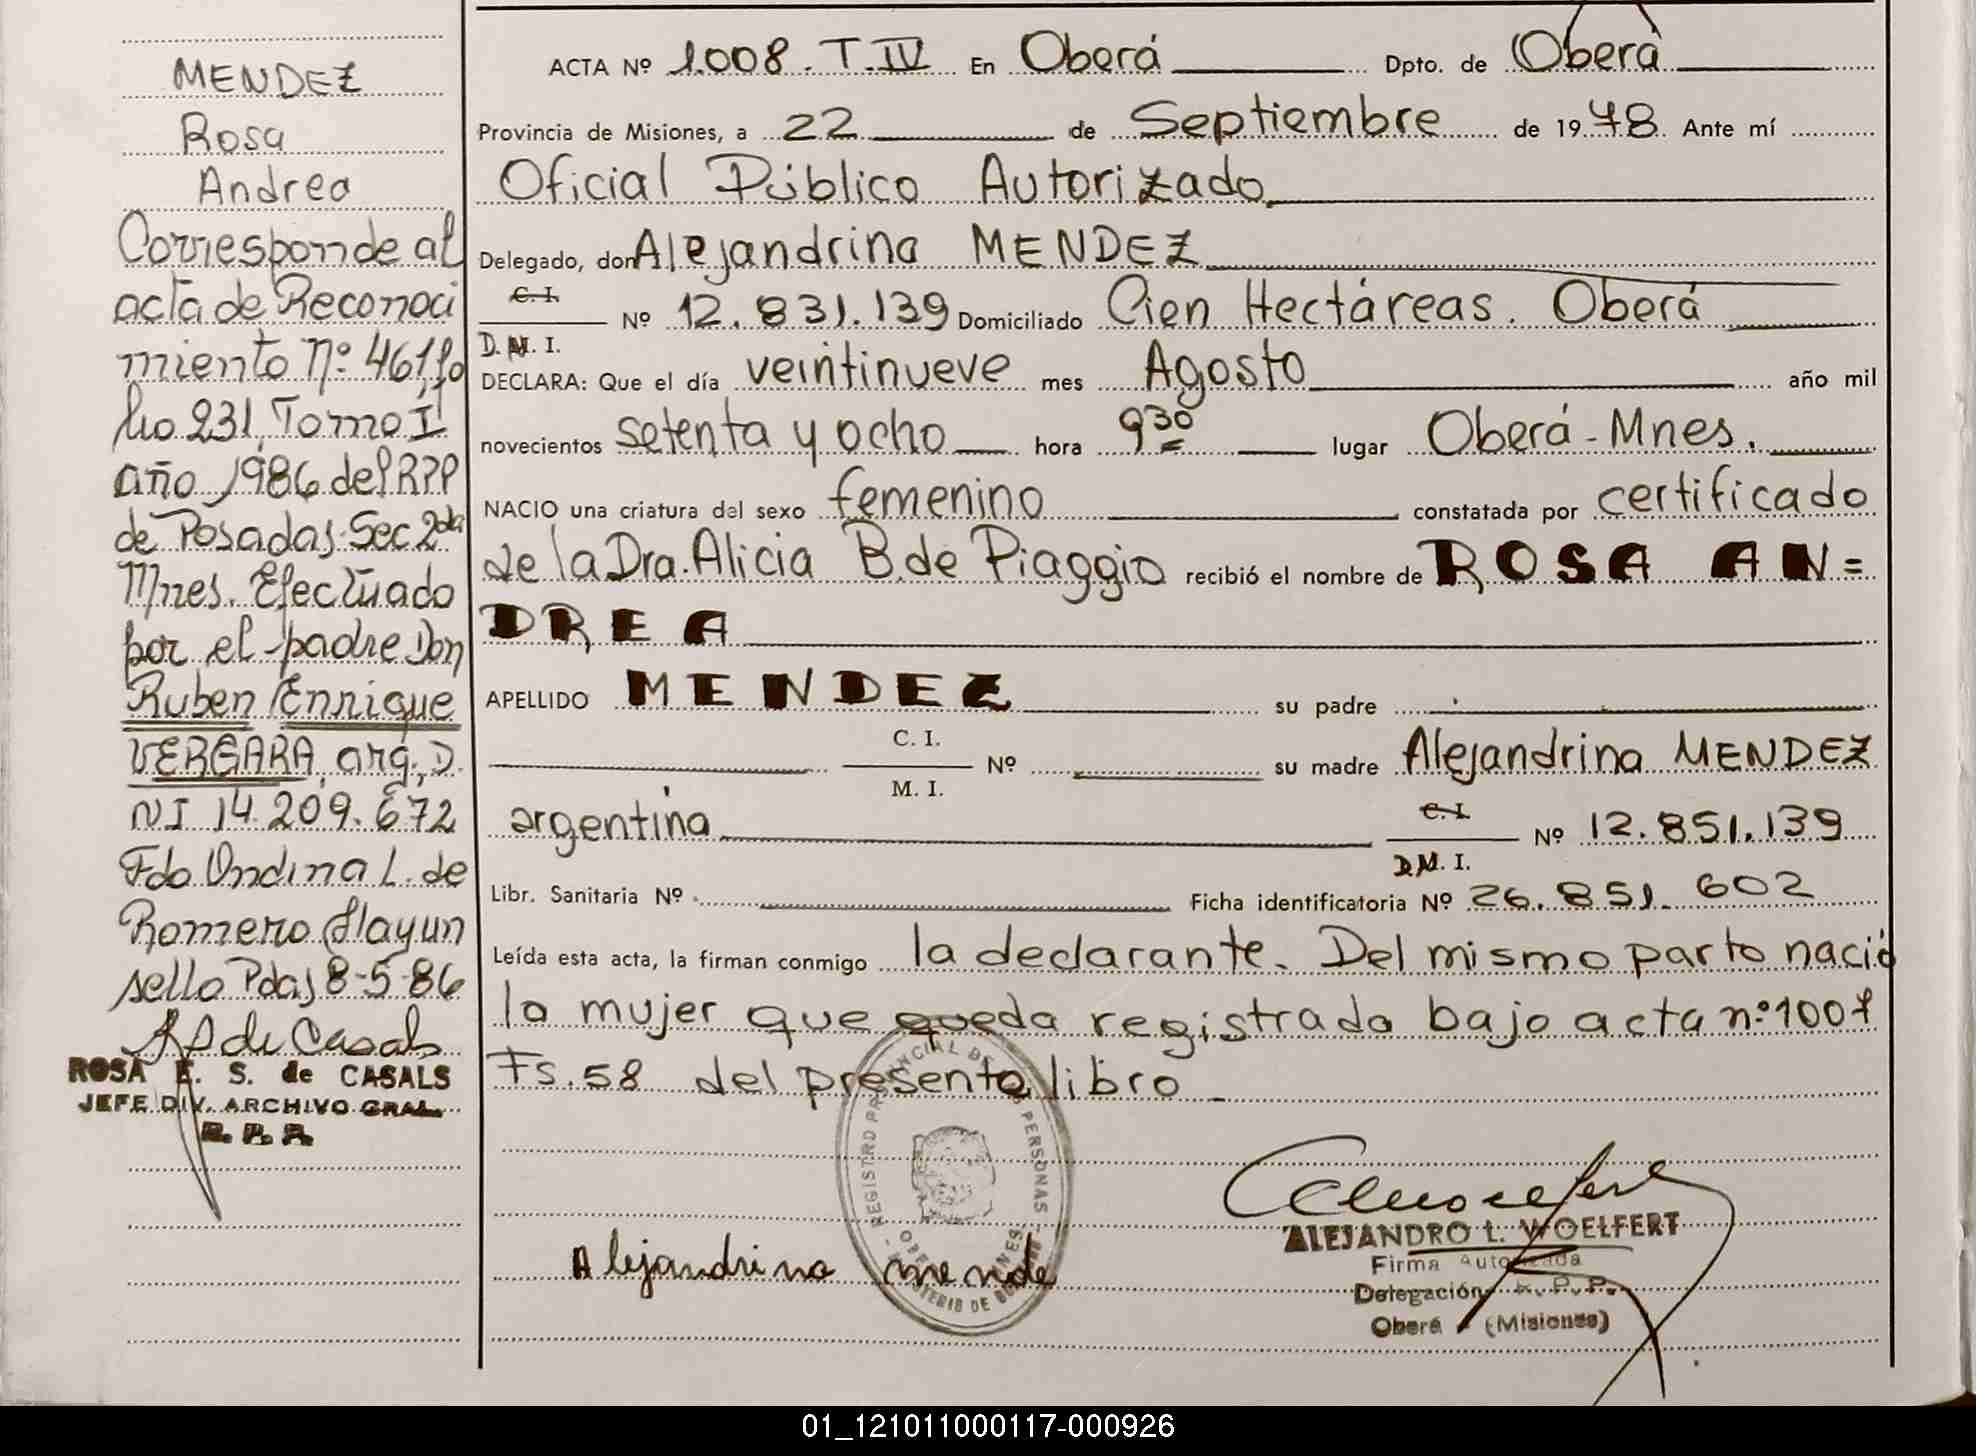 MENDEZ
Rosa
Andrea
Corresponde al
acta de Reconoci
miento Nº 461, fo
lio 231, Tomo I
año 1986 del RPP
de Posadas Sec 2da
Mnes. Efectuado
por el padre Don
Ruben Enrique
VERGARA, arg, D.
NI 14.209.672
Fdo Ondina L. de
Romero Hay un
sello Pdas 8-5-86
ROSA E. S. de CASALS
JEFE DIV. ARCHIVO GRAL.
R. P. P.
ACTA Nº 1.008. T. IV En Oberá Dpto. de Oberá
Provincia de Misiones, a 22 de Septiembre de 1978 Ante mí
Oficial Público Autorizado
Delegado, don Alejandrina MENDEZ
C. I.
Nº 12.831.139 Domiciliado Cien Hectáreas. Oberá
D.N. I.
DECLARA: Que el día veintinueve mes Agosto año mil
novecientos setenta y ocho hora 9 30 lugar Oberá - Mnes.
NACIO una criatura del sexo femenino constatada por certificado
de la Dra. Alicia B. de Piaggio recibió el nombre de ROSA AN=
DREA
APELLIDO MENDEZ su padre
C. I.
Nº su madre Alejandrina MENDEZ
M. I.
argentina C. I. Nº 12.851.139
D.N. I.
Libr. Sanitaria Nº Ficha identificatoria Nº 26.851.602
Leída esta acta, la firman conmigo la declarante. Del mismo parto nació
la mujer que queda registrada bajo acta nº 1007
Fs. 58 del presente libro
REGISTRO PROVINCIAL DE LAS PERSONAS
Alejandrina mende
ALEJANDRO L. WOELFERT
Firma Autorizada
Delegación R. P. P.
Oberá - (Misiones)
01_121011000117-000926